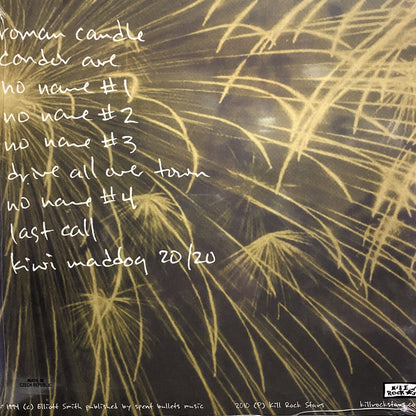 roman candle
condor ave
no name #1
no name #2
no name #3
drive all over town
no name #4
last call
kiwi maddog 20/20
MADE IN
CZECH REPUBLIC
1994 (c) Elliott Smith published by spent bullets music
2010 (P) Kill Rock Stars
killrockstars.co
KILL
ROCK